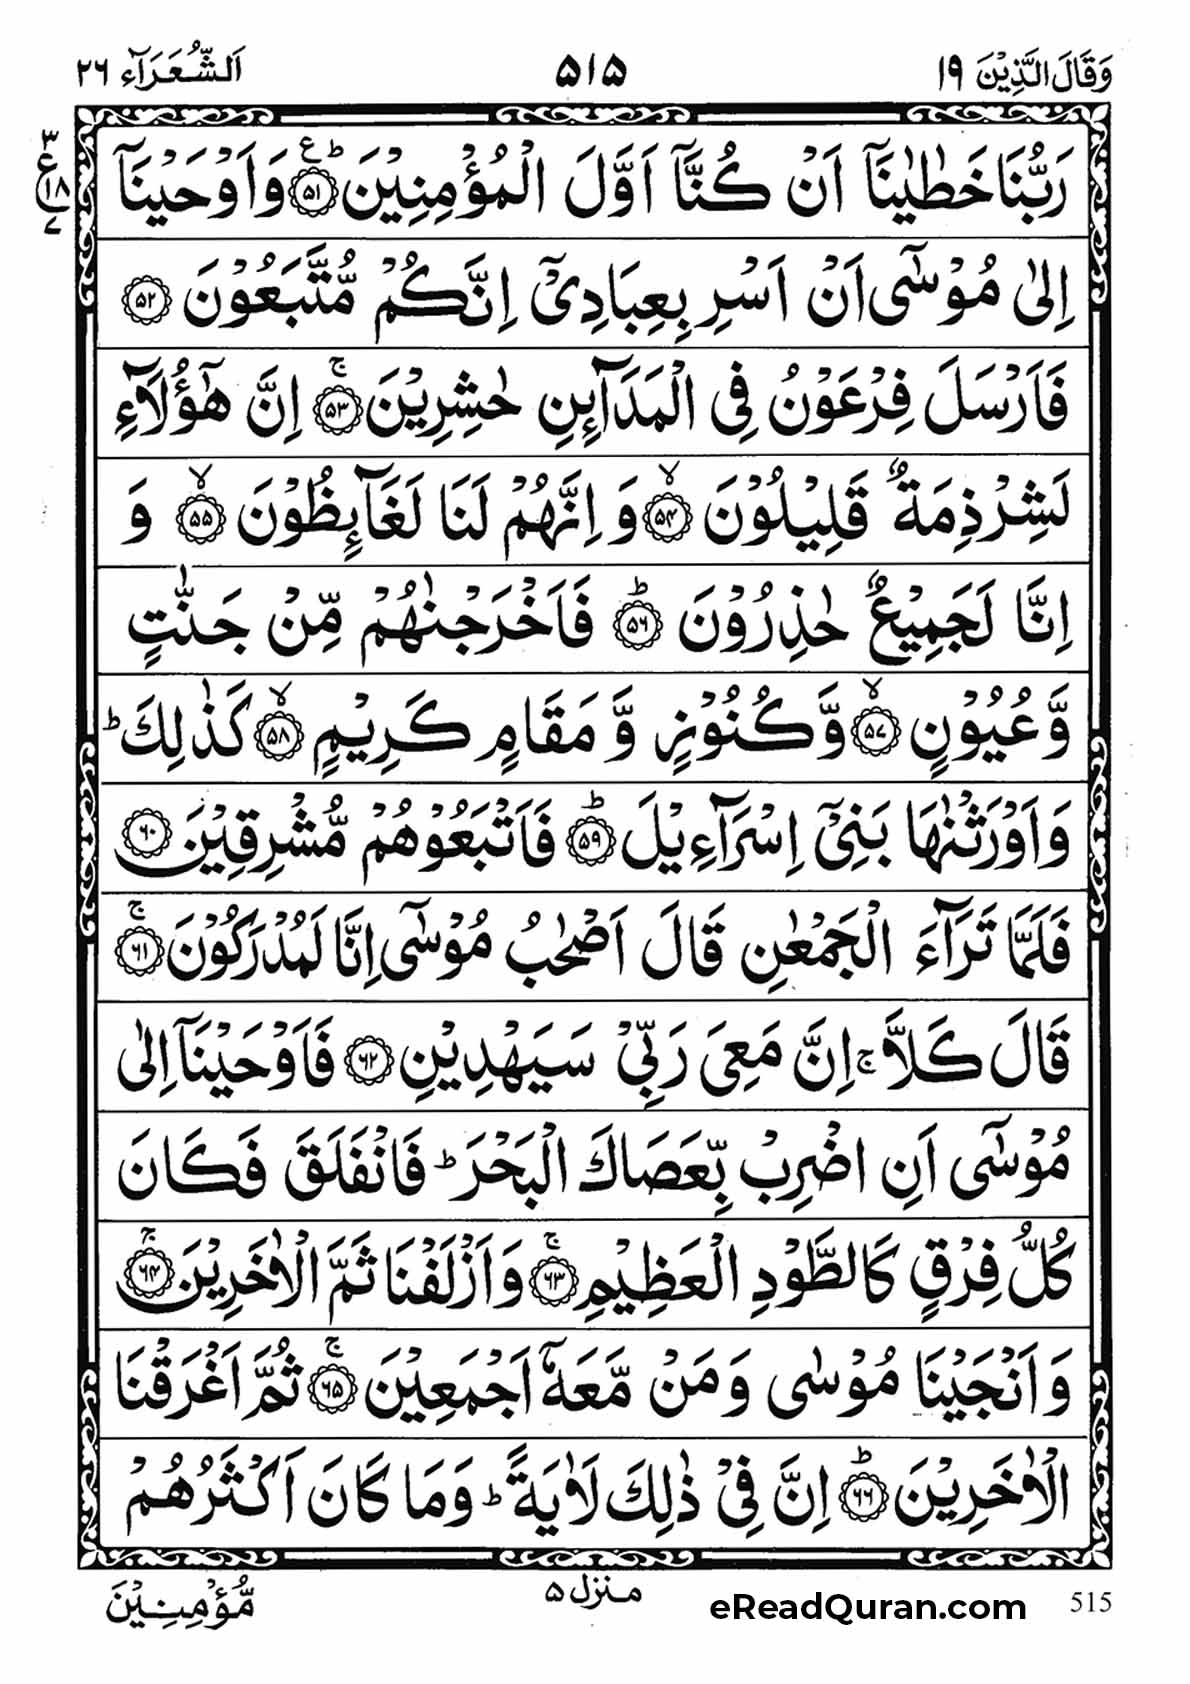 وَقَالَ الَّذِيْنَ ١٩
٥١٥
اَلشُّعَرَآء ٢٦
٣
ع
١٨
٧
رَبُّنَا خَطٰيٰنَآ اَنْ كُنَّآ اَوَّلَ الْمُؤْمِنِيْنَ ؕ۠ ﴿۵۱﴾ وَاَوْحَيْنَآ
اِلٰى مُوْسٰٓى اَنْ اَسْرِ بِعِبَادِيْٓ اِنَّكُمْ مُّتَّبَعُوْنَ ﴿۵۲﴾
فَاَرْسَلَ فِرْعَوْنُ فِى الْمَدَآئِنِ حٰشِرِيْنَ ۚ ﴿۵۳﴾ اِنَّ هٰٓؤُلَآءِ
لَشِرْذِمَةٌ قَلِيْلُوْنَ ۙ ﴿۵۴﴾ وَاِنَّهُمْ لَنَا لَغَآئِظُوْنَ ۙ ﴿۵۵﴾ وَ
اِنَّا لَجَمِيْعٌ حٰذِرُوْنَ ؕ ﴿۵۶﴾ فَاَخْرَجْنٰهُمْ مِّنْ جَنّٰتٍ
وَّعُيُوْنٍ ۙ ﴿۵۷﴾ وَّكُنُوْزٍ وَّمَقَامٍ كَرِيْمٍ ۙ ﴿۵۸﴾ كَذٰلِكَ ؕ
وَاَوْرَثْنٰهَا بَنِيْٓ اِسْرَآءِيْلَ ؕ ﴿۵۹﴾ فَاَتْبَعُوْهُمْ مُّشْرِقِيْنَ ﴿۶۰﴾
فَلَمَّا تَرَآءَ الْجَمْعٰنِ قَالَ اَصْحٰبُ مُوْسٰٓى اِنَّا لَمُدْرَكُوْنَ ۚ ﴿۶۱﴾
قَالَ كَلَّا ۚ اِنَّ مَعِىَ رَبِّىْ سَيَهْدِيْنِ ﴿۶۲﴾ فَاَوْحَيْنَآ اِلٰى
مُوْسٰٓى اَنِ اضْرِبْ بِّعَصَاكَ الْبَحْرَ ؕ فَانْفَلَقَ فَكَانَ
كُلُّ فِرْقٍ كَالطَّوْدِ الْعَظِيْمِ ۚ ﴿۶۳﴾ وَاَزْلَفْنَا ثَمَّ الْاٰخَرِيْنَ ۚ ﴿۶۴﴾
وَاَنْجَيْنَا مُوْسٰى وَمَنْ مَّعَهٗٓ اَجْمَعِيْنَ ۚ ﴿۶۵﴾ ثُمَّ اَغْرَقْنَا
الْاٰخَرِيْنَ ؕ ﴿۶۶﴾ اِنَّ فِيْ ذٰلِكَ لَاٰيَةً ؕ وَمَا كَانَ اَكْثَرُهُمْ
515
eReadQuran.com
منزل ۵
مُّؤْمِنِيْنَ